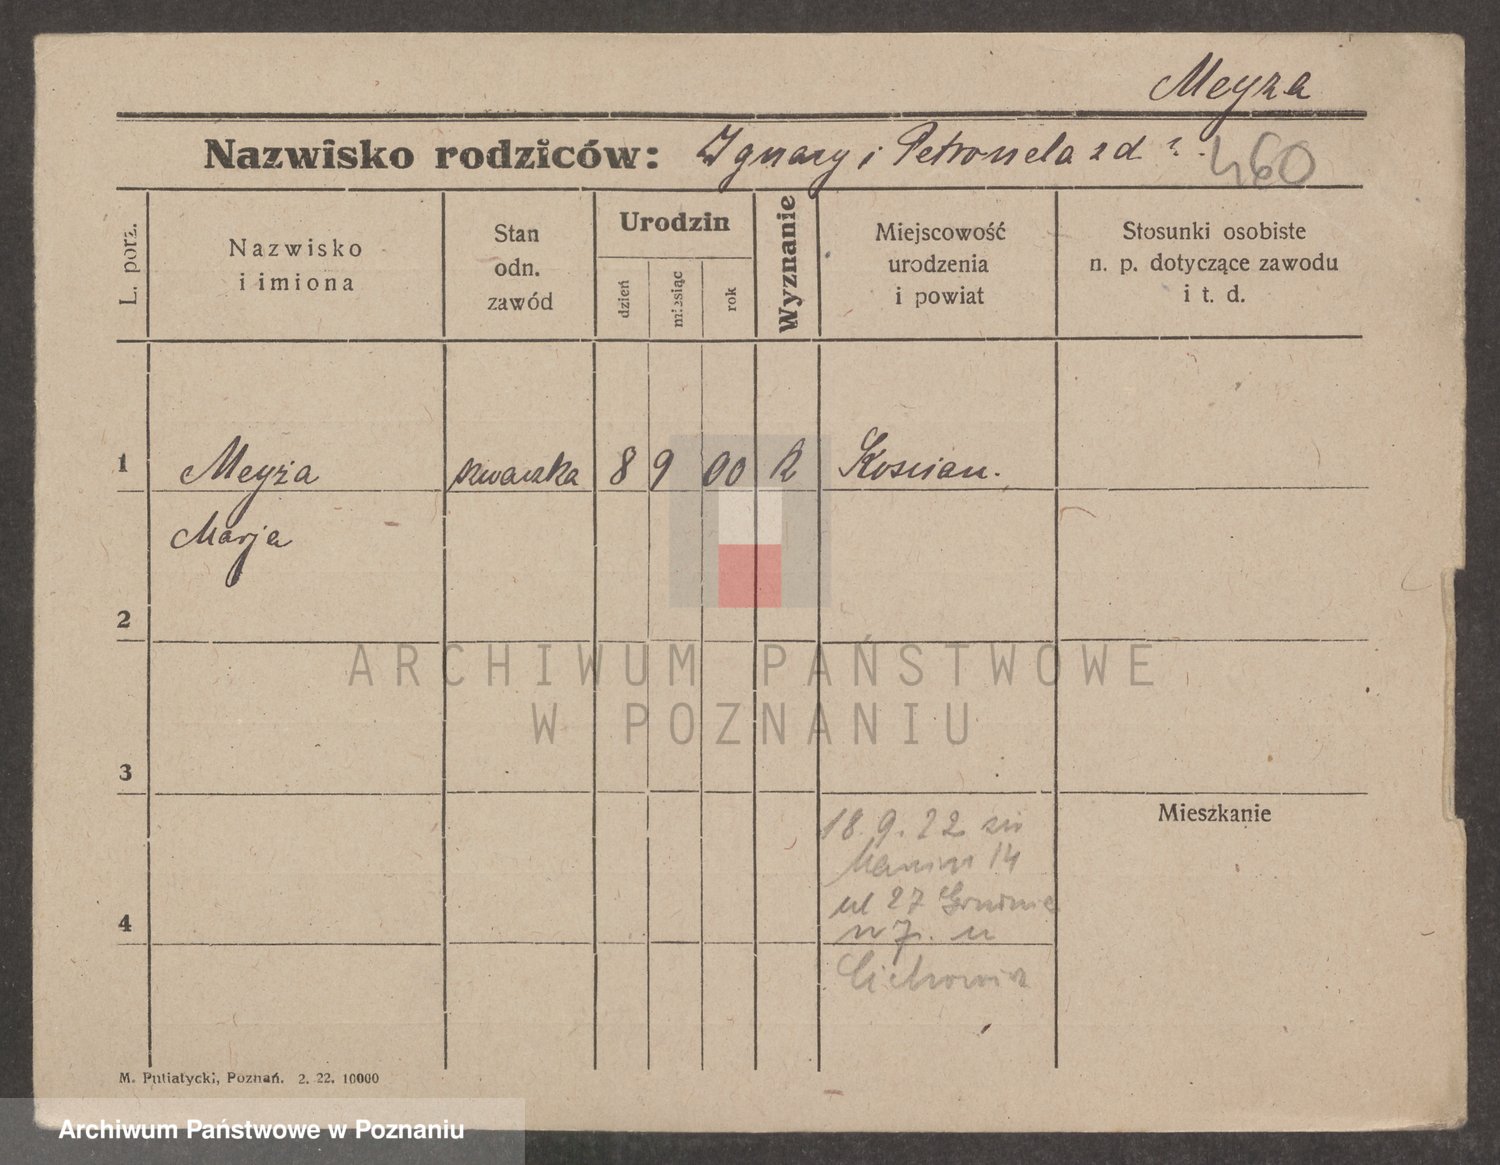 Meyza
Nazwisko rodziców: Ignacy i Petronela z d ?.
460
L. porz.
Nazwisko
i imiona
Stan
odn.
zawód
Urodzin
dzień
miesiąc
rok
Wyznanie
Miejscowość
urodzenia
i powiat
Stosunki osobiste
n. p. dotyczące zawodu
i t. d.
1
Meyża
szwaczka
8
9
00
k
Kościan.
Marja
2
3
4
Mieszkanie
18.9.22
14
ul 27 Grudnia
7.
M. Putiatycki, Poznań. 2. 22. 10000
ARCHIWUM PAŃSTWOWE
W POZNANIU
Archiwum Państwowe w Poznaniu